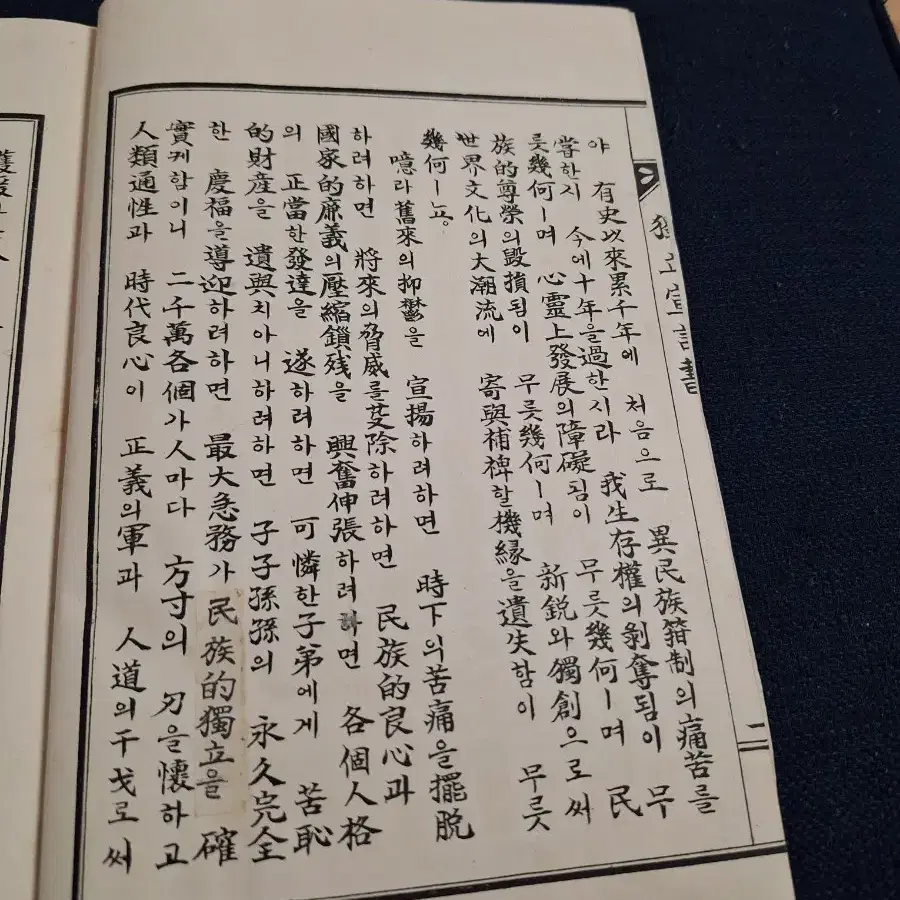 獨立宣言書
二
야 有史以來累千年에 처음으로 異民族箝制의 痛苦를
嘗한지 今에十年을過한지라 我生存權의剝奪됨이 무
릇幾何ㅣ며 心靈上發展의障礙됨이 무릇幾何ㅣ며 民
族的尊榮의毀損됨이 무릇幾何ㅣ며 新銳와獨創으로써
世界文化의大潮流에 寄與補裨할機緣을遺失함이 무릇
幾何ㅣ뇨。
噫라舊來의抑鬱을 宣揚하려하면 時下의苦痛을擺脫
하려하면 將來의脅威를芟除하려하면 民族的良心과
國家的廉義의壓縮鎖残을 興奮伸張하려하면 各個人格
의 正當한發達을 遂하려하면 可憐한子弟에게 苦恥
的財産을 遺與치아니하려하면 子子孫孫의 永久完全
한 慶福을導迎하려하면 最大急務가 民族的獨立을 確
實케함이니 二千萬各個가人마다 方寸의 刃을懷하고
人類通性과 時代良心이 正義의軍과 人道의干戈로써